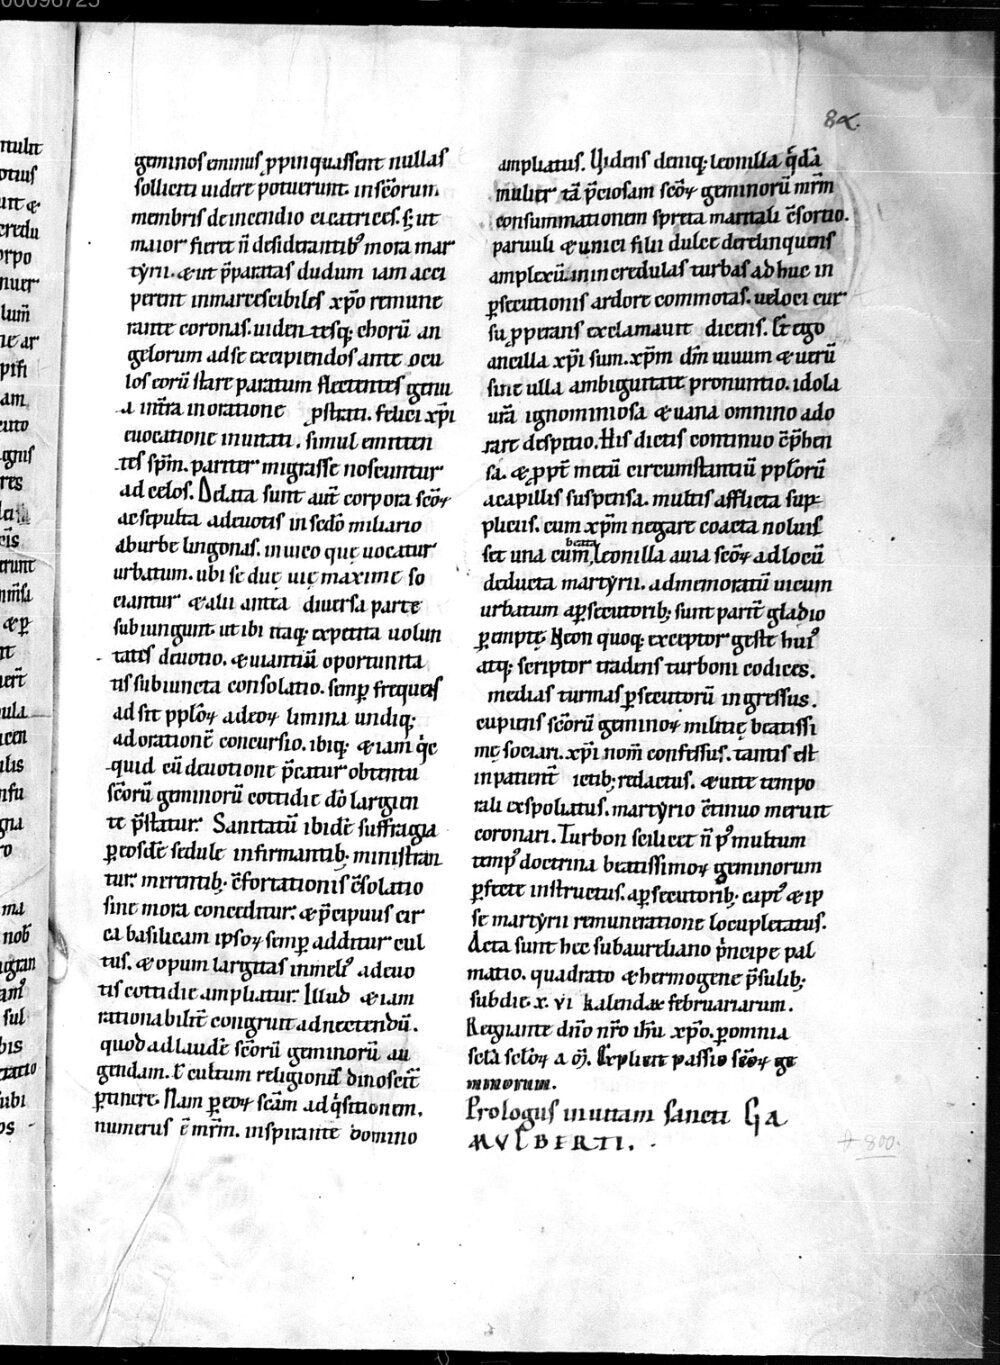 00098725
84.
geminos eminus ꝓpinquassent nullas
solliciti uidere potuerunt. in scōrum
membris de incendio cicatrices. Sꝫ ut
maior fieret n̄ desiderantibꝰ mora mar
tẏrii. & ut p̄paratas dudum iam acci
perent inmarcescibiles xp̄o remune
rante coronas. uidentesqꝫ chorū an
gelorum ad se excipiendos ante ocu
los eorū stare paratum flectentes genu
a intra in oratione ꝓstrati. felici xp̄i
euocatione inuitati. simul emitten
tes spm̄. pariter migrasse noscuntur
ad celos. Delata sunt aut̄ corpora scōꝝ
ac sepulta a deuotis in scd̄o miliario
ab urbe lingonas. in uico quę uocatur
urbatum. ubi se duę uię maxime so
ciantur & alii antea diuersa parte
subiungunt. ut ibi itaqꝫ expetita uolun
tatis deuotio. & uiantiū oportunita
tis subiuncta consolatio. semp̱ frequens
ad sit pplōꝝ ad eoꝝ limina undiqꝫ
ad orationē concursio. ibiqꝫ &iam qͥc
quid cū deuotione p̄catur obtentu
scōrū geminorū cottidie dō largien
te p̄statur. Sanitatū ibidē suffragia
ꝑ eosdē sedule infirmantibꝫ ministran
tur. merentibꝫ cōfortationis cōsolatio
sine mora conceditur. & p̄cipuus cir
ca basilicam ipsoꝝ semp̱ additur cul
tus. & opum largitas in melꝰ a deuo
tis cottidie ampliatur. Illud &iam
rationabilit̄ congruit adnectendū.
quod ad laudē scōrū geminorū au
gendam. ł cultum religionis dinoscit̄
ꝑtinere. Nam ꝑ eoꝝ scām adqͥsitionem.
numerus ē mr̄m. inspirante domino
ampliatus. Uidens deniqꝫ leonilla qͣdā
mulier tā p̄ciosam scōꝝ geminorū mr̄m
consummationem spreta maritali cōsortio.
paruuli & unici filii dulce derelinquens
amplexū. in incredulas turbas adhuc in
ꝑsecutionis ardore commotas. ueloci cur
su ꝓperans exclamauit dicens. Et ego
ancilla xp̄i sum. xp̄m dm̄ uiuum & uerū
sine ulla ambiguitate pronuntio. idola
ur̄a ignominiosa & uana omnino ado
rare despitio. His dictis continuo cōp̄hen
sa. & ꝓpt̄ metū circumstantiū pplōrū
a capillis suspensa. multis afflicta sup
pliciis. cum xp̄m negare coacta noluis
set una cum beata leonilla auia scōꝝ ad locū
deducta martẏrii. ad memoratū uicum
urbatum a ꝑsecutoribꝫ sunt parit̄ gladio
ꝑempte. Neon quoqꝫ exceptor geste huiꝰ
atqꝫ scriptor tradens turboni codices.
medias turmas ꝑsecutorū ingressus.
cupiens scōrū geminoꝝ militię beatissi
mę sociari. xp̄i nom̄ confessus. tantis est
inpatient̄ ictibꝫ redactus. & uite tempo
rali expoliatus. martẏrio cōtinuo meruit
coronari. Turbon scilicet n̄ pꝰ multum
tempꝰ doctrina beatissimoꝝ geminorum
ꝑfecte instructus. a ꝑsecutoribꝫ captꝰ & ip
se martẏrii remuneratione locupletatus.
Acta sunt hec sub aurehano p̄ncipe pal
matio. quadrato & hermogene p̄sulibꝫ
sub die x. vi kalendas februariarum.
Regnante dn̄o nr̄o ih̄u xp̄o. ꝑ omnia
scl̄a scl̄oꝝ a m̄. Explicit passio scōꝝ ge
minorum.
Prologus in uitam sancti GA
MULBERTI.
† 800.